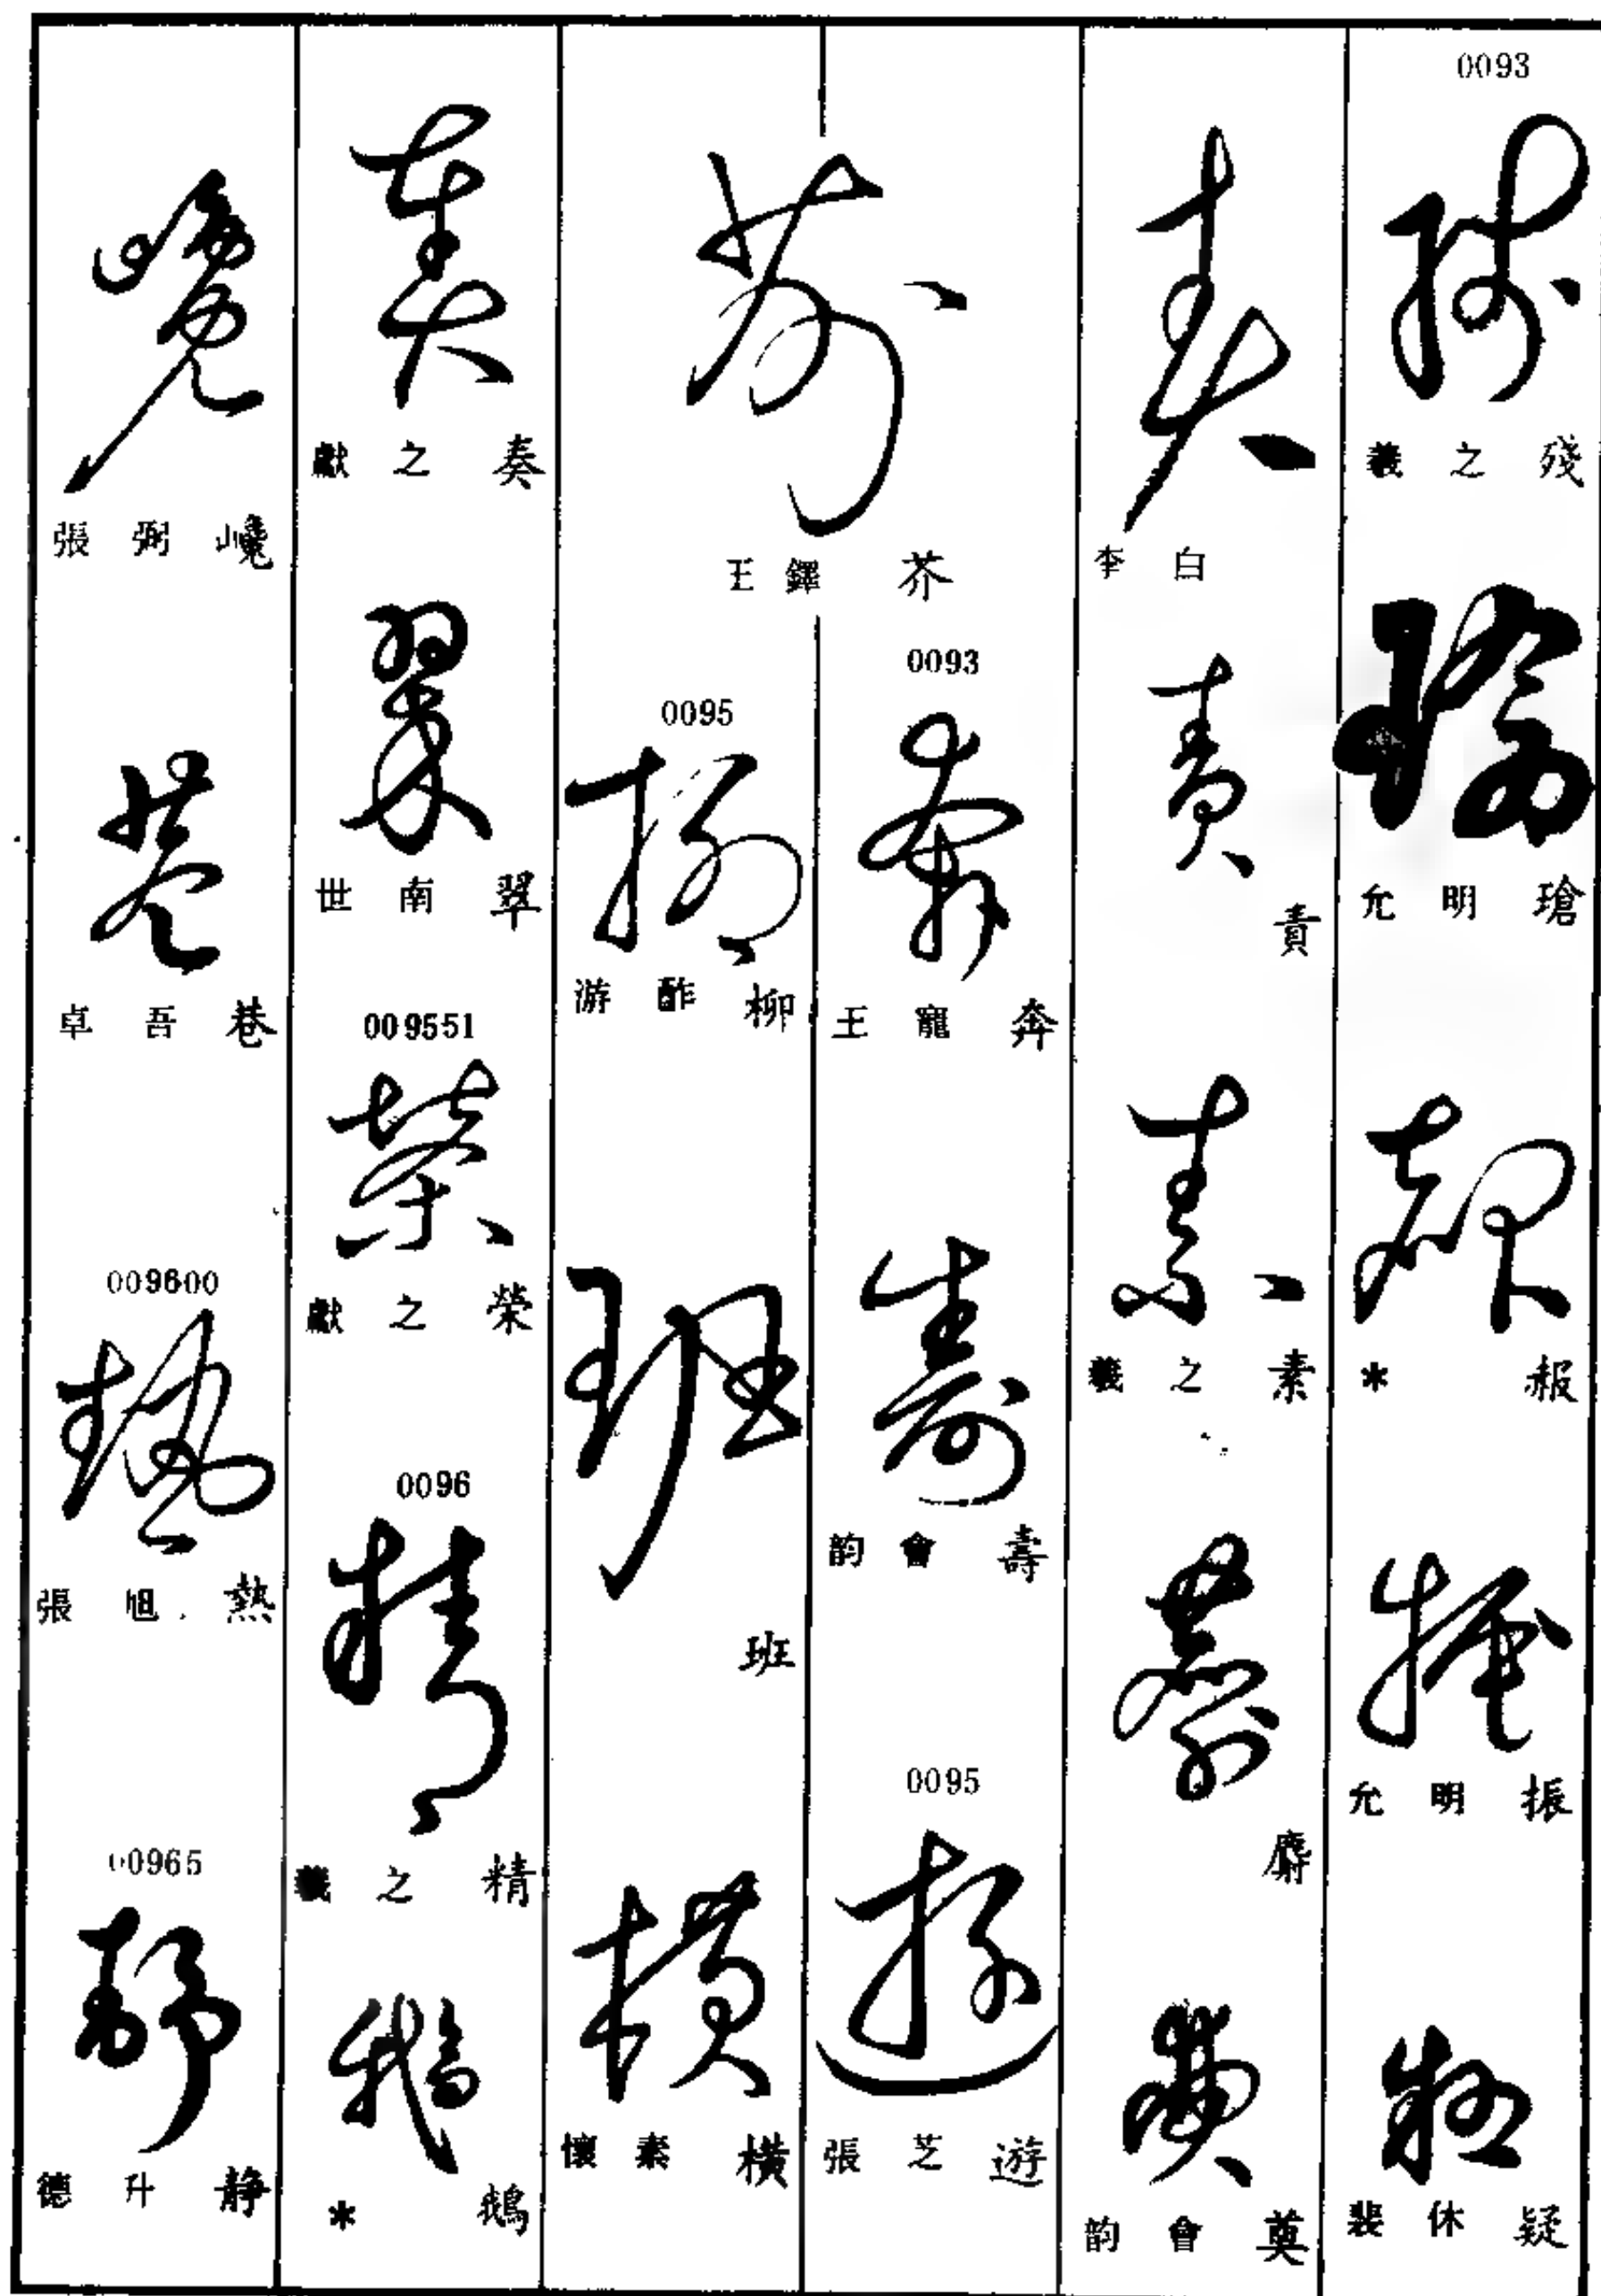 0093
羲之 殘
允明 瑲
* 赧
允明 振
裴休 疑
李白
責
羲之 素
麝
韵會 奠
王鐸 芥
0093
王寵 奔
韵會 壽
0095
張芝 遊
0095
游酢 柳
班
懷素 橫
獻之 奏
世南 翠
009551
獻之 榮
0096
羲之 精
* 鵝
張弼 巉
卓吾 巷
009600
張旭 熱
00965
德升 靜